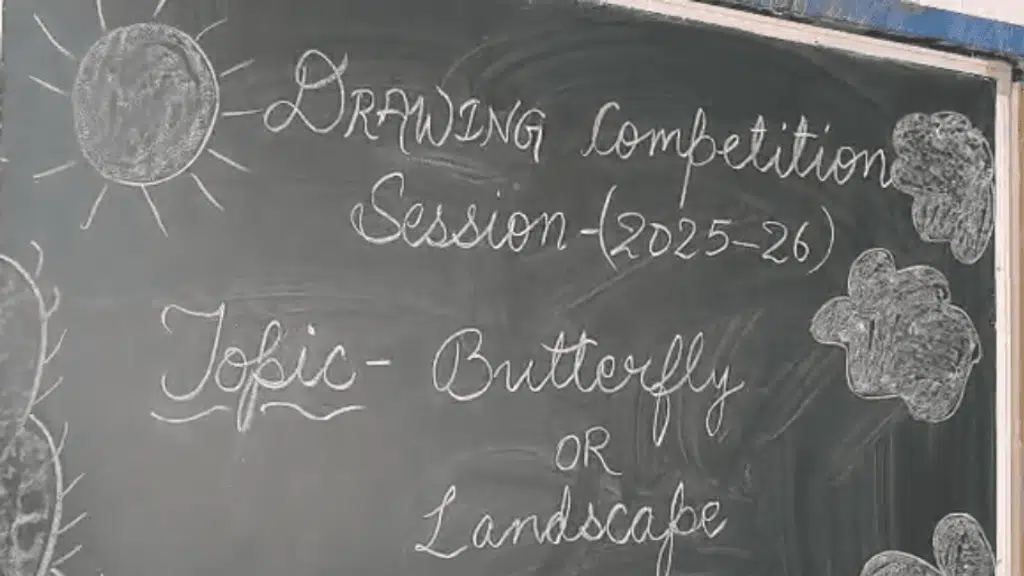 DRAWING Competition
Session-(2025-26)
Topic- Butterfly
OR
Landscape